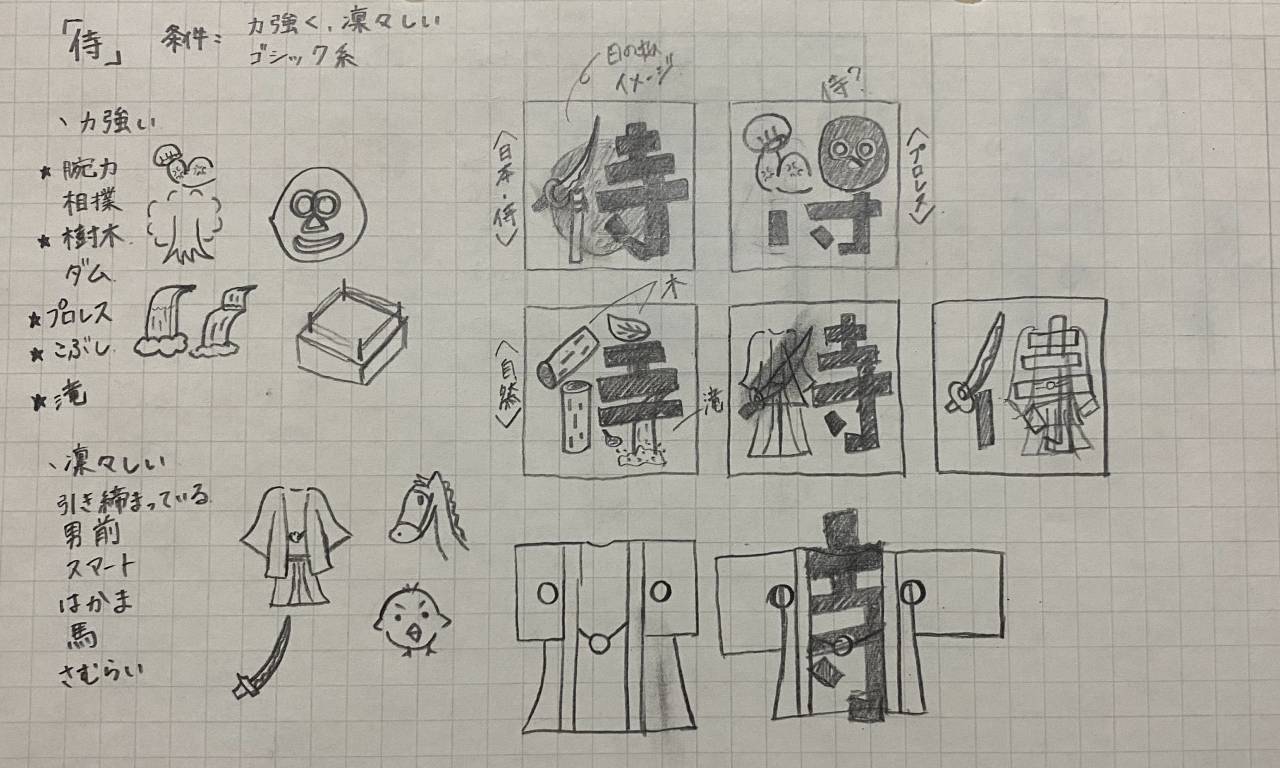 「侍」 条件: 力強く、凛々しい
ゴシック系
、力強い
★ 腕力
相撲
★ 樹木
ダム
★ プロレス
★ こぶし
★ 滝
、凛々しい
引き締まっている
男前
スマート
はかま
馬
さむらい
日の丸
イメージ
〈日本・侍〉
侍
侍?
〈プロレス〉
寸
木
〈自然〉
滝
寺
寺
寺